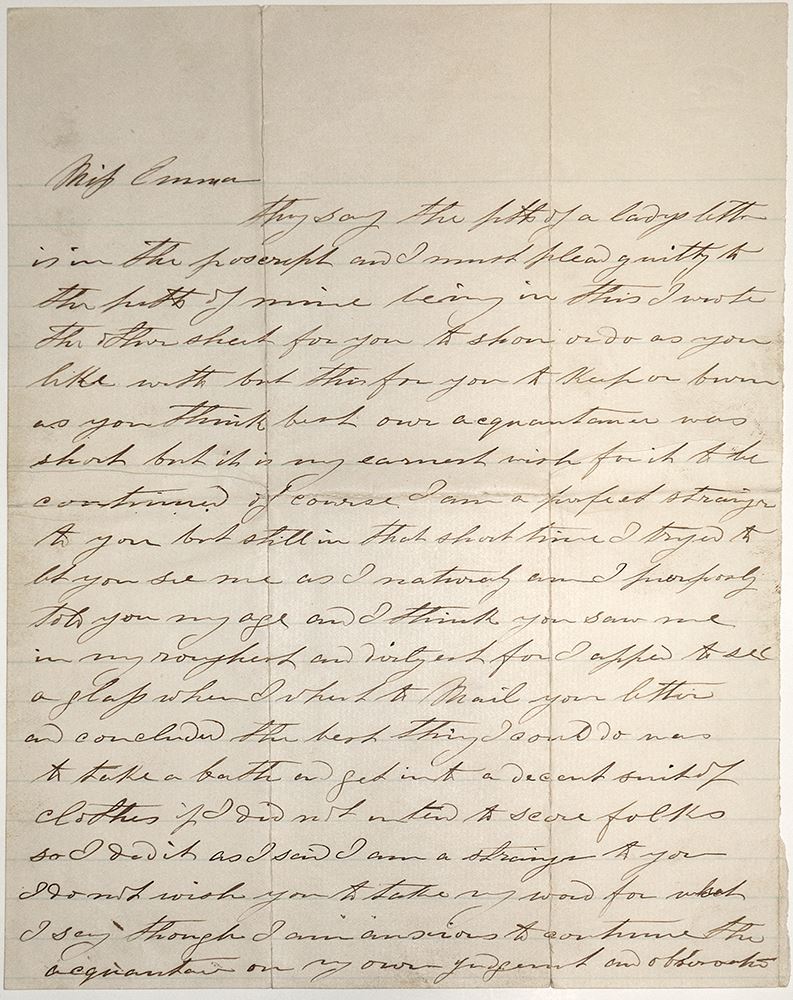 Miss Emma
They say the pith of a ladys letter
is in the poscript and I must plead guilty to
the pith of mine being in this I wrote
the other sheet for you to show or do as you
like with but this for you to keep or burn
as you think best our acquantance was
short but it is my earnest wish for it to be
continued of course I am a perfect stranger
to you but still in that short time I tryed to
let you see me as I naturaly am I purposly
told you my age and I think you saw me
in my roughest and dirtyest for I apped to see
a glass when I whent to Mail your letter
and concluded the best thing I could do was
to take a bath and get into a decent suit of
clothes if I did not intend to scare folks
so I did it as I said I am a stranger to you
I do not wish you to take my word for what
I say though I am anxious to continue the
acquantance on my own judgement and observation